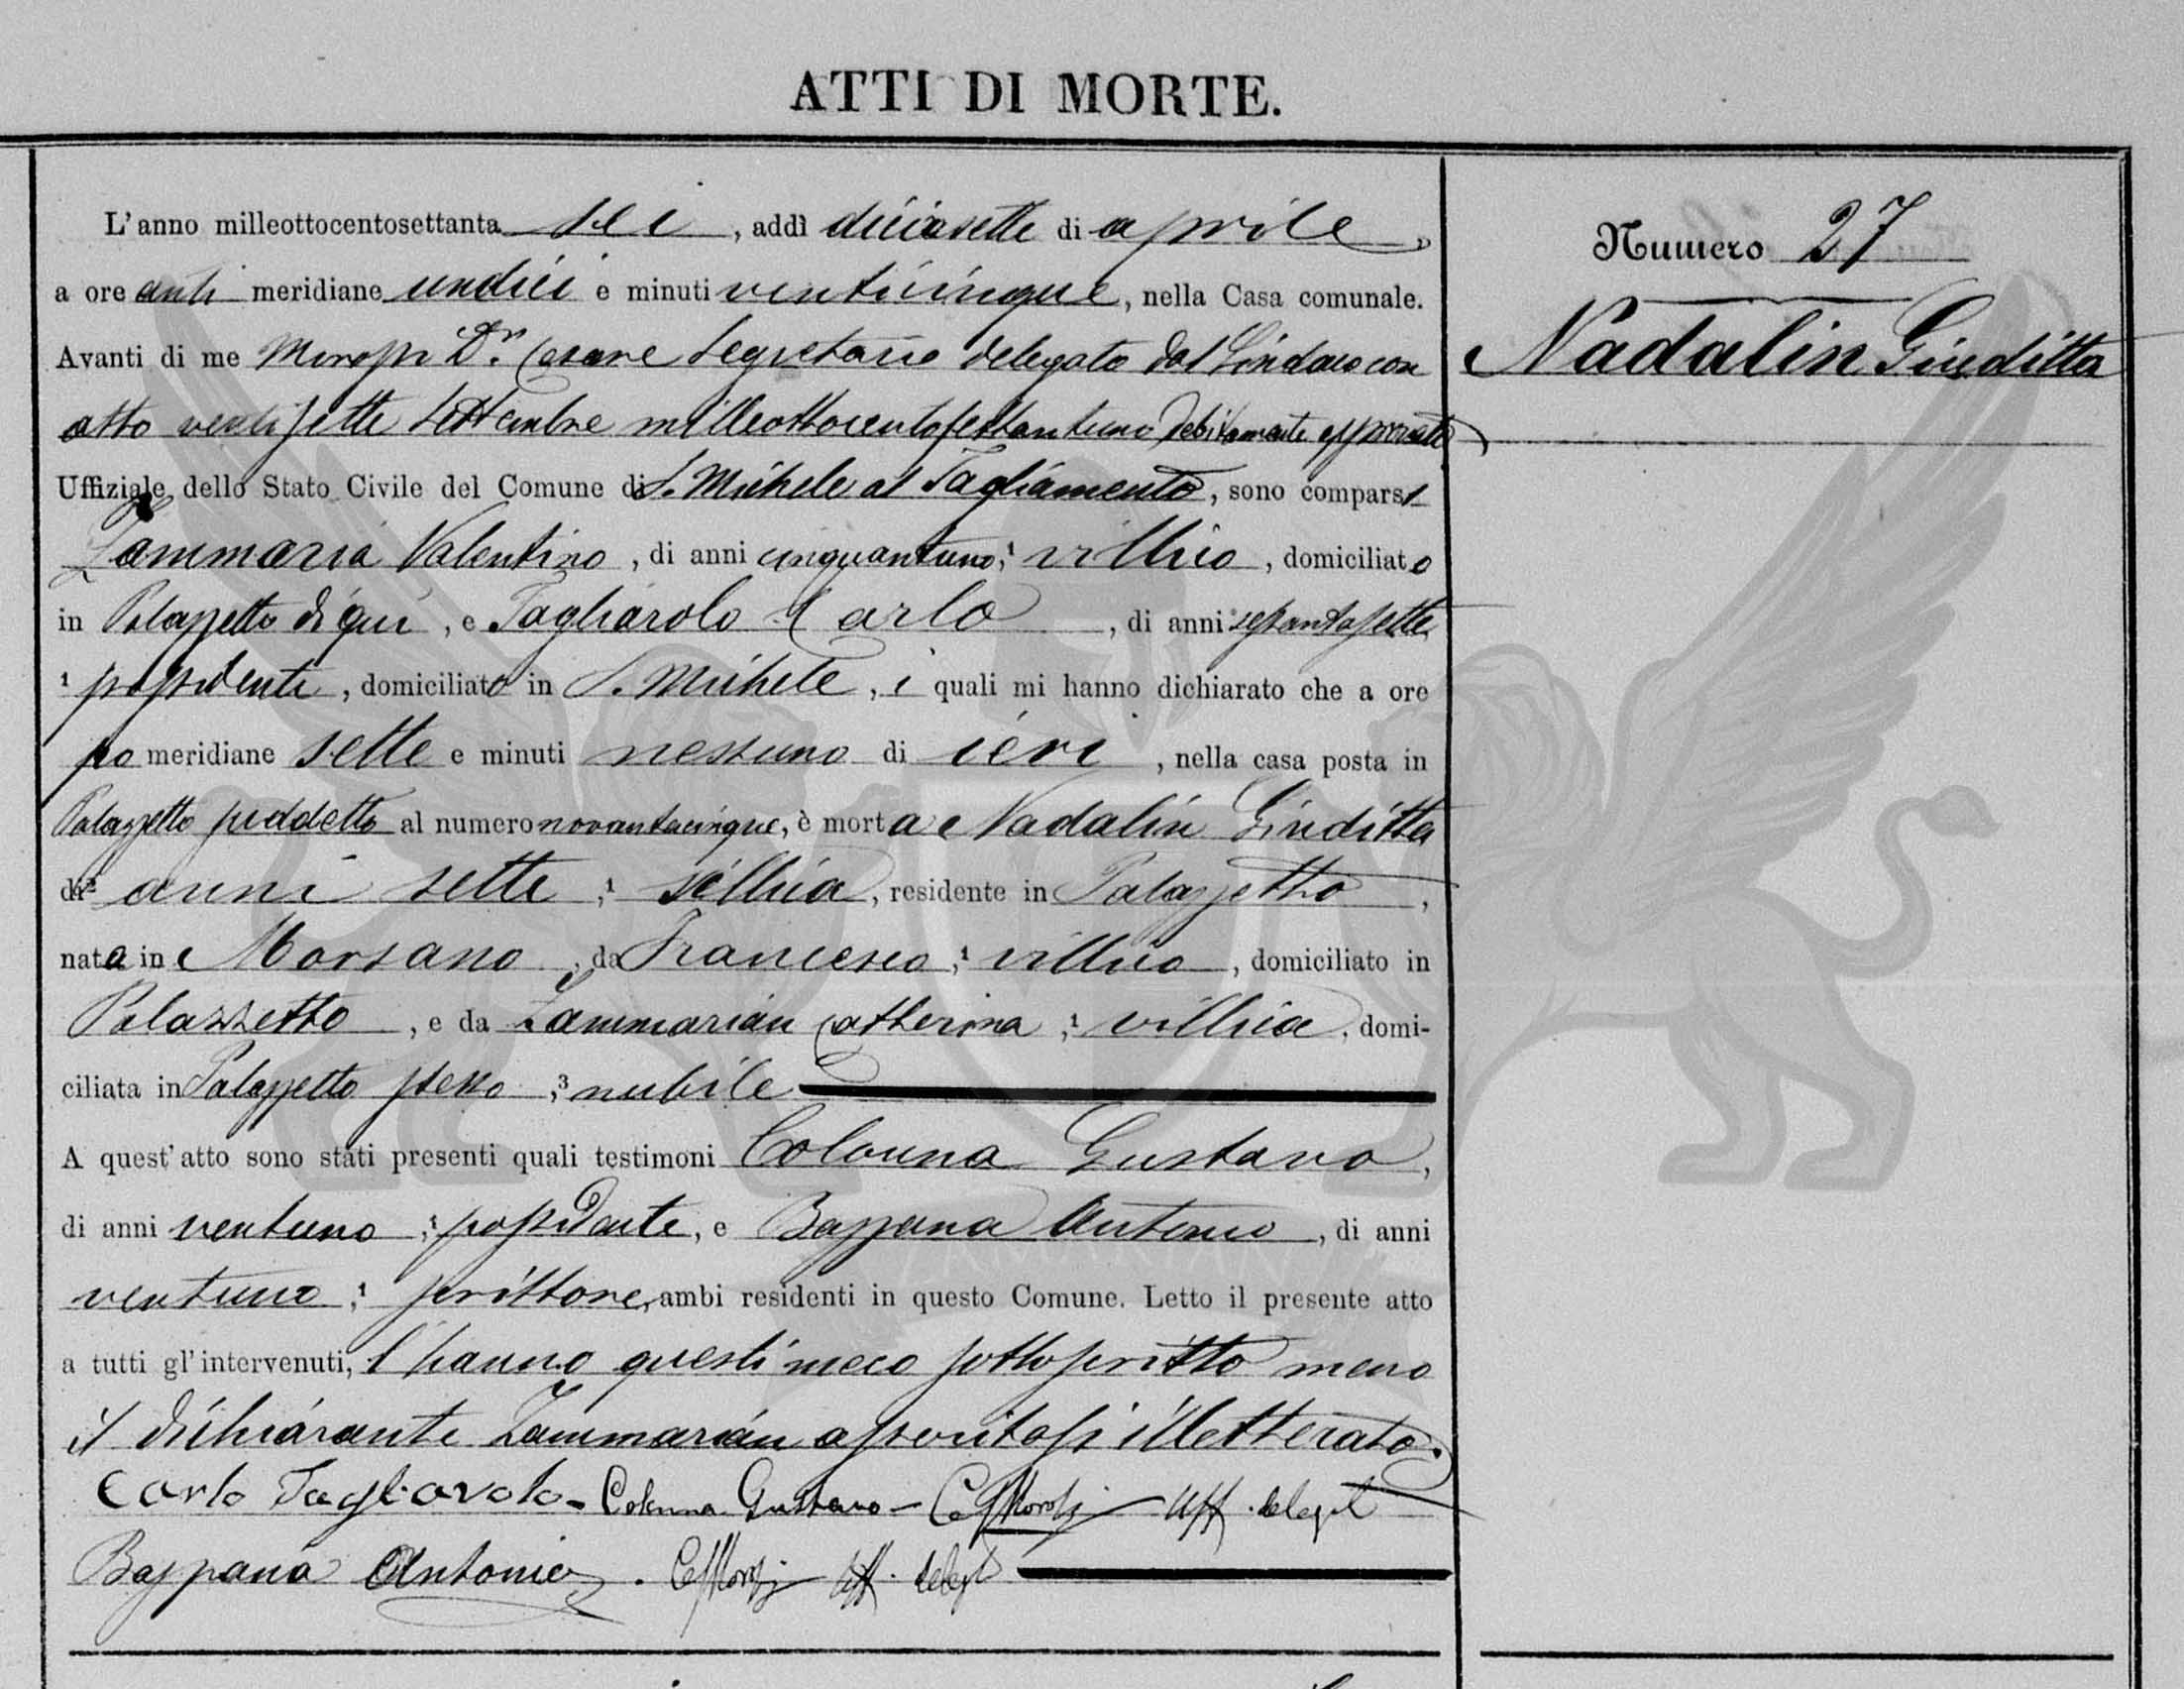 ATTI DI MORTE.
L'anno milleottocentosettanta sei, addì diciasette di aprile,
a ore anti meridiane undici e minuti venticinque, nella Casa comunale.
Avanti di me Dr. Cesare Segretario delegato dal Sindaco con
atto ventisette Settembre milleottocentosettantuno debitamente approvato
Uffiziale dello Stato Civile del Comune di S. Michele al Tagliamento, sono comparsi
Zammaria Valentino, di anni cinquantuno, ¹ villico, domiciliato
in Palazzetto di qui, e Tagliarolo Carlo, di anni
¹ possidente, domiciliato in S. Michele, i quali mi hanno dichiarato che a ore
po meridiane sette e minuti nessuno di ieri, nella casa posta in
Palazzetto suddetto al numero novantacinque, è morta Nadalin Giuditta
di² anni sette, ¹ villica, residente in Palazzetto,
nata in Morsano, da Francesco, ¹ villico, domiciliato in
Palazzetto, e da Zammarian Catterina, ¹ villica, domi-
ciliata in Palazzetto stesso, ³ nubile
A quest'atto sono stati presenti quali testimoni Colonna Gustavo,
di anni ventuno, ¹ possidente, e Bazzana Antonio, di anni
ventuno, ¹ scrittore, ambi residenti in questo Comune. Letto il presente atto
a tutti gl'intervenuti, l'hanno questi meco sottoscritto meno
il dichiarante Zammarian asseritosi illetterato.
Carlo Tagliarolo - Colonna Gustavo - Uff. delegt
Bazzana Antonio. Uff. delegt
Numero 27
Nadalin Giuditta